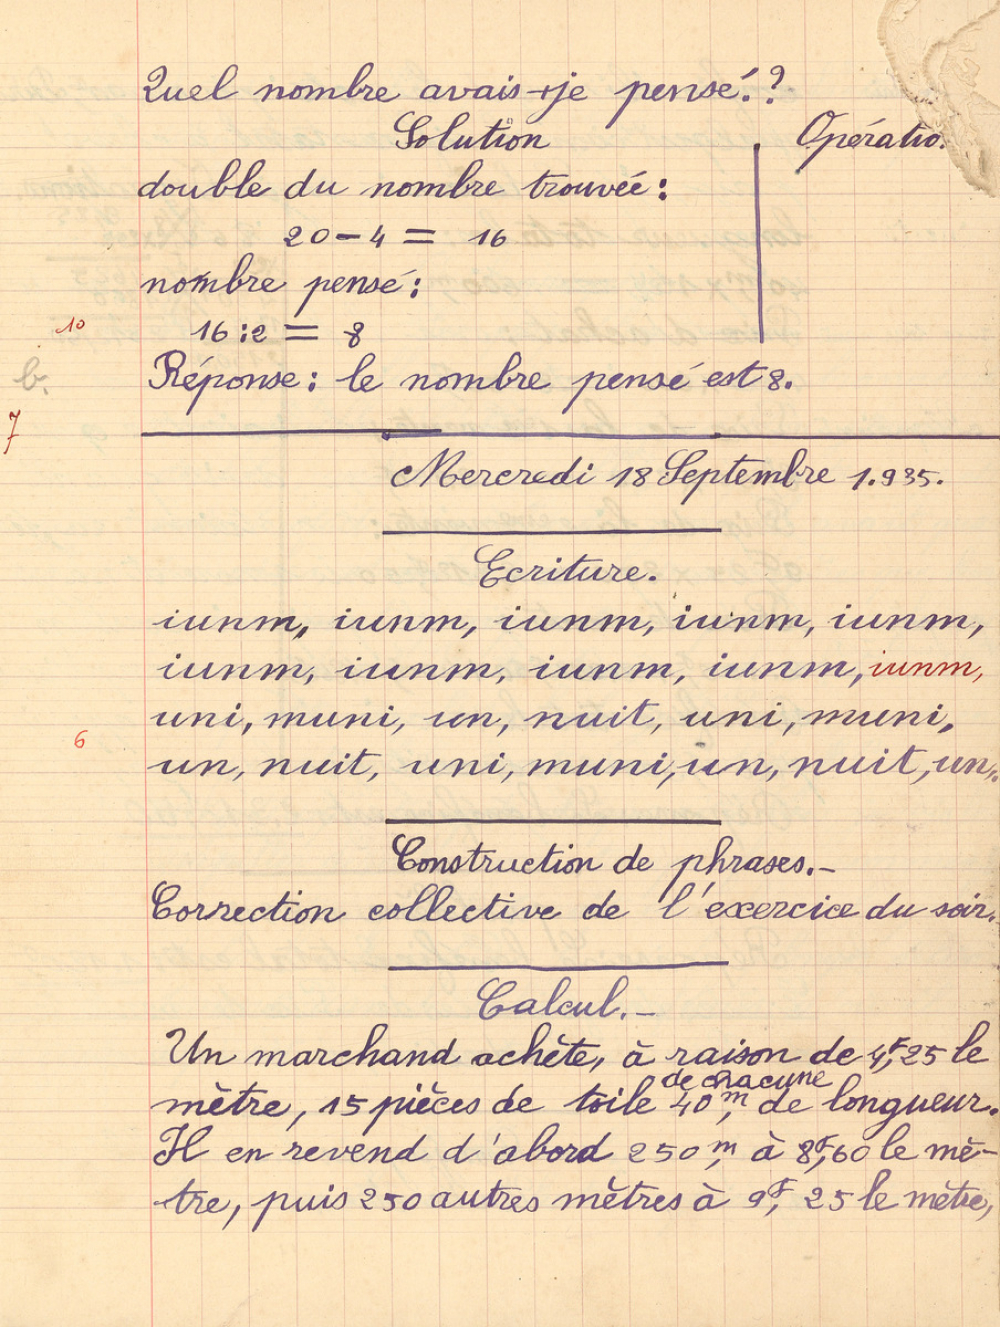 Quel nombre avais-je pensé.??
Solution
Opératio.
double du nombre trouvée:
20-4 = 16
nombre pensé:
10
16:2 = 8
b.
Réponse: le nombre pensé est 8.
7
Mercredi 18 Septembre 1.935.
Ecriture.
iunm, iunm, iunm, iunm, iunm,
iunm, iunm, iunm, iunm, iunm,
uni, muni, un, nuit, uni, muni,
6
un, nuit, uni, muni, un, nuit, un,
Construction de phrases.-
Correction collective de l'exercice du soir.
Calcul.-
Un marchand achète, à raison de 4F,25 le
de chacune
mètre, 15 pièces de toile 40m, de longueur.
Il en revend d'abord 250m, à 8F,60 le mè-
tre, puis 250 autres mètres à 9F, 25 le mètre,